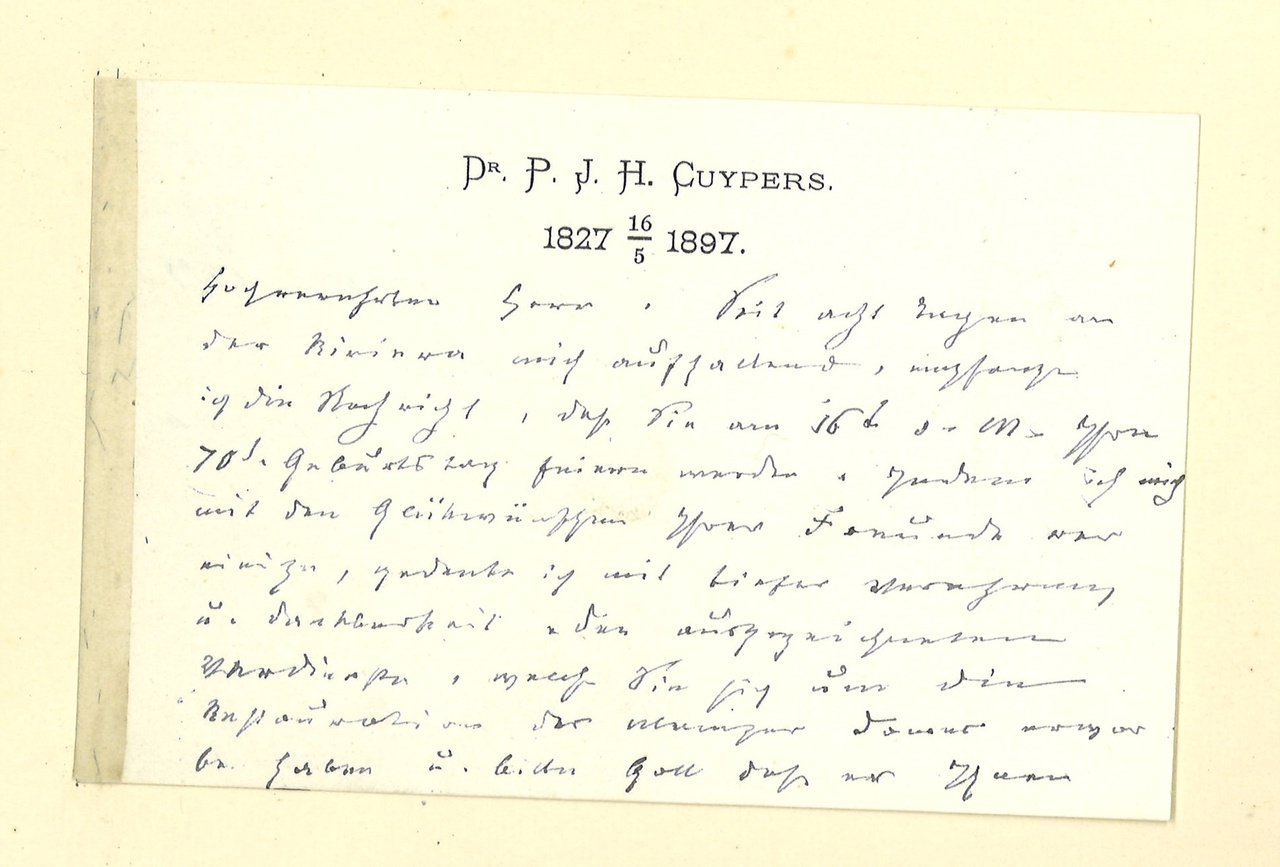 Dr. P. J. H. Cuypers.
1827 16/5 1897.
Hochverehrter Herr. Seit acht Tagen an
der Riviera mich aufhaltend, empfange
ich die Nachricht, daß Sie am 16t d. M. Ihren
70t. Geburtstag feiern werden. Indem ich mich
mit den Glückwünschen Ihrer Freunde ver
einige, gedenke ich mit tiefer Verehrung
u. Dankbarkeit der ausgezeichneten
Verdienste, welche Sie sich um die
Restauration des Mainzer Domes erwor
be haben u. bitte Gott daß er Ihnen